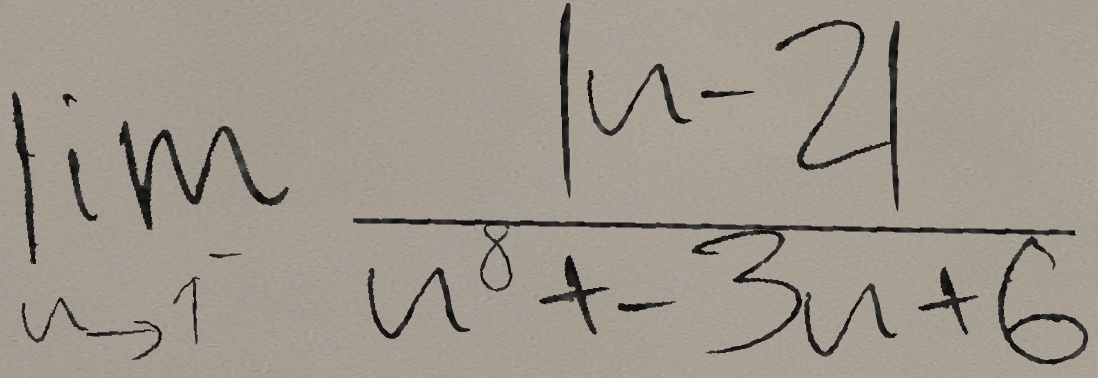 \lim_{u \to 1^-} \frac{|u-2|}{u^8+-3u+6}